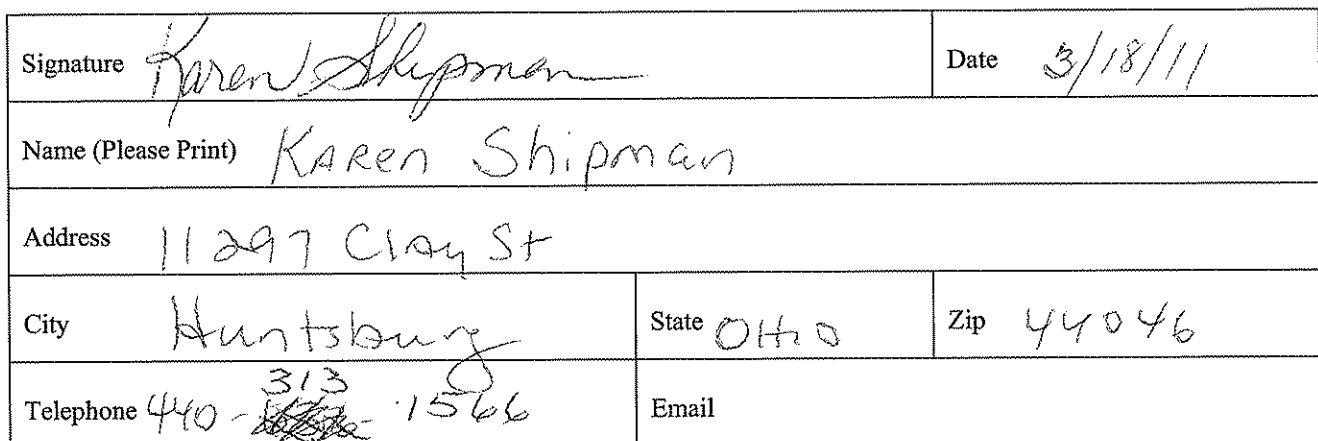 Signature Karen Shipman Date 3/18/11
Name (Please Print) KAREN Shipman
Address 11297 Clay St
City Huntsburg State OHIO Zip 44046
313
Telephone 440- -1566 Email